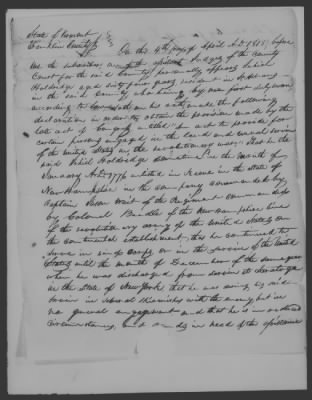 State of Vermont
Franklin County ss
On this 4th day of April A.D. 1818 before
me the subscriber one of the Judges of the County
Court for the said County personally appears Jehiel
Holdridge aged sixty four years resident in
in the said County who being by me first duly sworn
according to law doth on his oath make the following
declaration in order to obtain the provision made by the
late act of Congress entitled "An act to provide for
certain persons engaged in the land and naval service
of the United States in the revolutionary war" That he the
said Jehiel Holdridge in the month of
January A.D. 1776 enlisted in Keene in the State of
New Hampshire in the company commanded by
Captain Jason Wait of the Regiment commanded
by Colonel Beedle of the New Hampshire line
of the revolutionary army of the United States on
the continental establishment, that he continued to
serve in said Corps or in the service of the United
States until the month of December of the same year
when he was discharged from service at Saratoga
in the State of New York that he was during his said
service in several skirmishes with the enemy but in
no general engagement and that he is in reduced
circumstances, and stands in need of the assistance